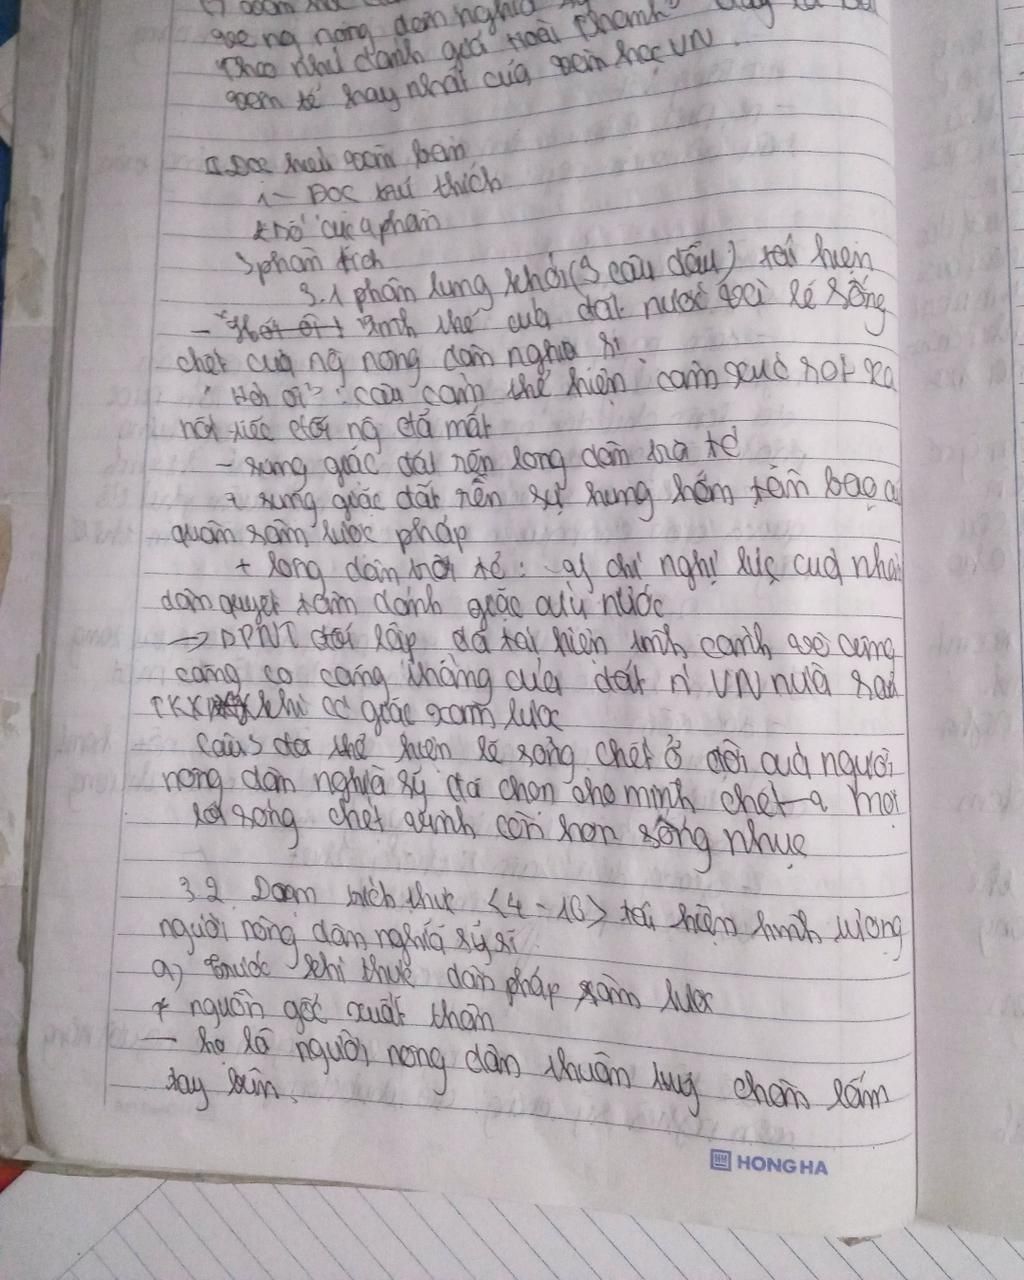 nông dân nghĩa
Theo như đánh giá Hoài Thanh
văn tế hay nhất của văn học VN.
II. Đọc hiểu văn bản
1 - Đọc chú thích
bố cục 4 phần
3 phân tích
3.1 phần lung khởi (3 câu đầu) tái hiện
- tình thế của đất nước và lẽ sống
chết của ng nông dân nghĩa sĩ
"Hỡi ơi": câu cảm thể hiện cảm xúc xót xa
nối tiếc đối ng đã mất
- súng giặc đất rền lòng dân trời tỏ
+ súng giặc đất rền sự hung hãn tàn bạo
quân xâm lược pháp
+ lòng dân trời tỏ: ý chí nghị lực của nhân
dân quyết tâm đánh giặc cứu nước
→ NT đối lập đã tái hiện tình cảnh vô cùng
căng thẳng của đất n' VN nửa sau
khi có giặc xâm lược
câu 3 đã thể hiện lẽ sống chết ở đời của người
nông dân nghĩa sỹ đã chọn cho mình chết 1 một
lối sống chết vinh còn hơn sống nhục
3.2 Đoạn thích thực <4 - 16> tái hiện hình tượng
người nông dân nghĩa sỹ sĩ
a) trước khi thực dân pháp xâm lược
* nguồn gốc xuất thân
- họ là người nông dân thuần tuý chân lấm
tay bùn.
HONG HA